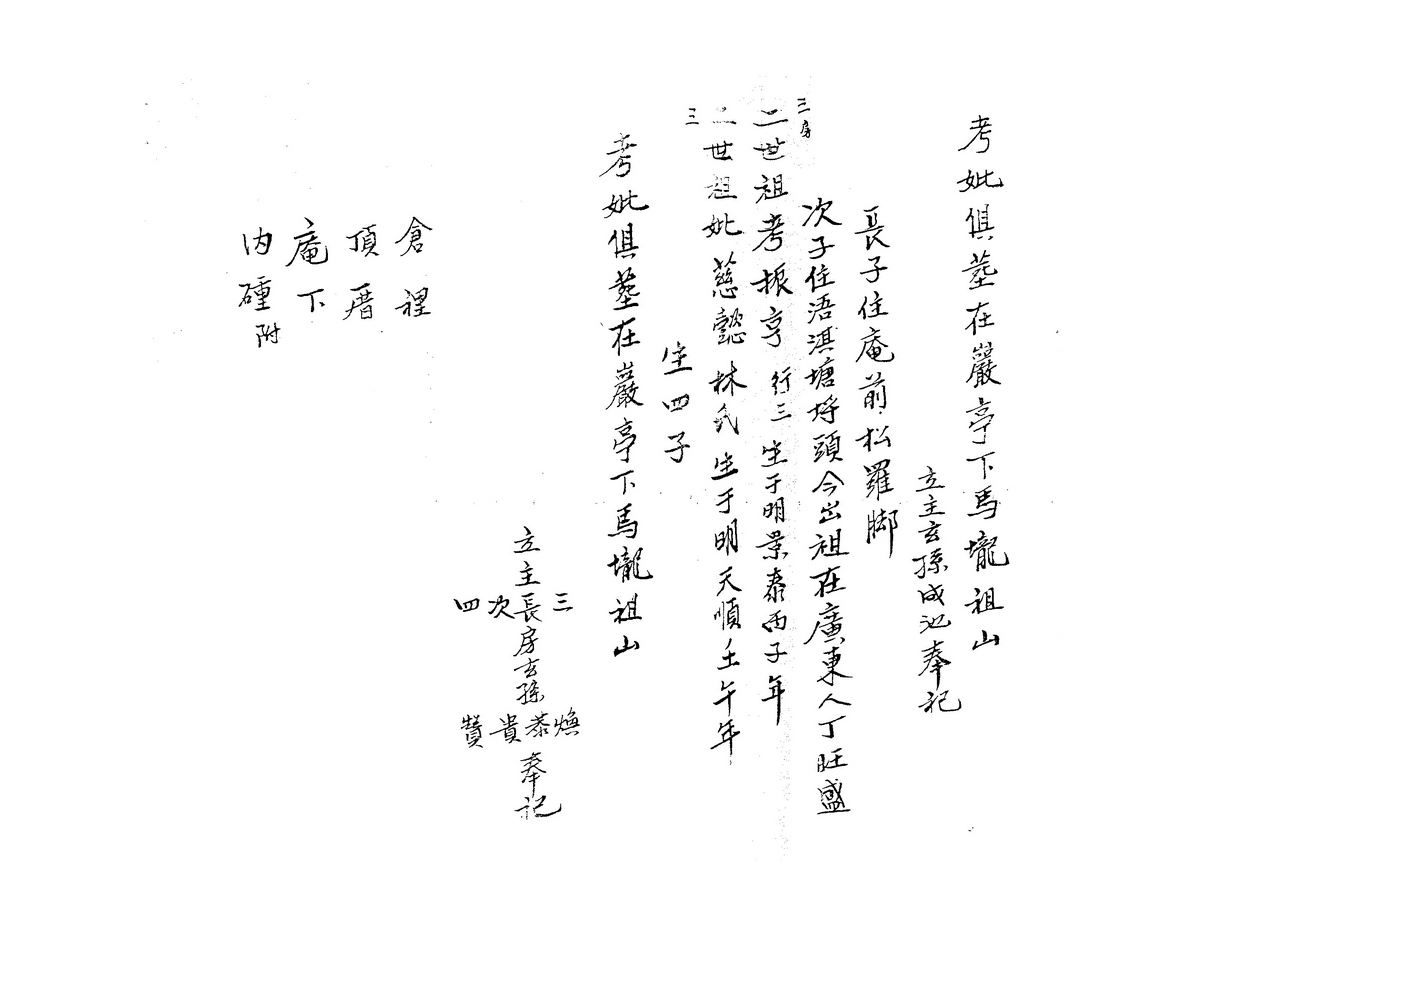 考妣俱塟在巖亭下馬壠祖山
立主玄孫成池奉記
長子住庵前松羅脚
次子住浯淇塘埓頭今出祖在廣東人丁旺盛
三房
二世祖考振亨 行三 生于明景泰丙子年
二世祖妣慈懿林氏生于明天順壬午年
三
生四子
考妣俱塟在巖亭下馬壠祖山
三
立主長房玄孫 奉記
次
四
煥
恭
貴
贊
倉裡
頂厝
庵下
內硾附